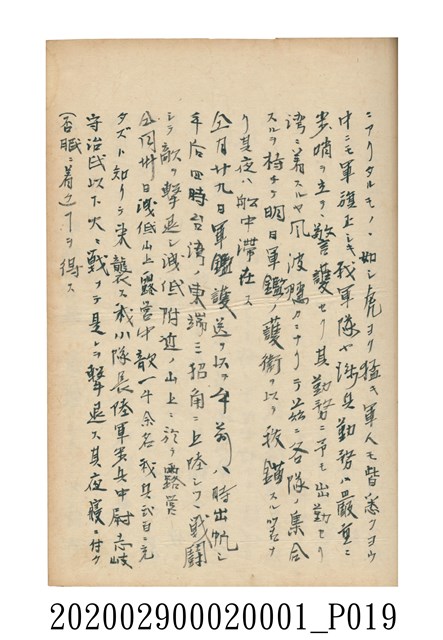 ニアリタルモノヽ如シ虎ヨリ猛キ軍人モ皆悉クヨウ
中ニモ軍旗正シキ我軍隊ヤ
歩哨ヲ立テ警護セリ其勤務ニ予モ出勤セリ
湾ニ着スルヤ風波穏カニナリテ茲ニ各隊ノ集合
スルヲ待チテ明日軍艦ノ護衛ヲ以テ抜錨スル
リ其夜ハ船中滞在ス
仝月廿九日軍鑑護送ヲ以テ午前八時出帆シ
午后四時台湾ノ東端三招角ニ上陸シテ戦闘
シテ敵ヲ撃退シ浅低附近ノ山上ニ於テ露営
仝月卅日浅低山上露営中敵一千余名我兵
タズト知リテ来襲ス我小隊長陸軍歩兵中尉志岐
守治氏以下大ニ戦フテ是レヲ撃退ス其夜寝ニ付ク
モ眠ニ着クヿヲ得ス
202002900020001_P019